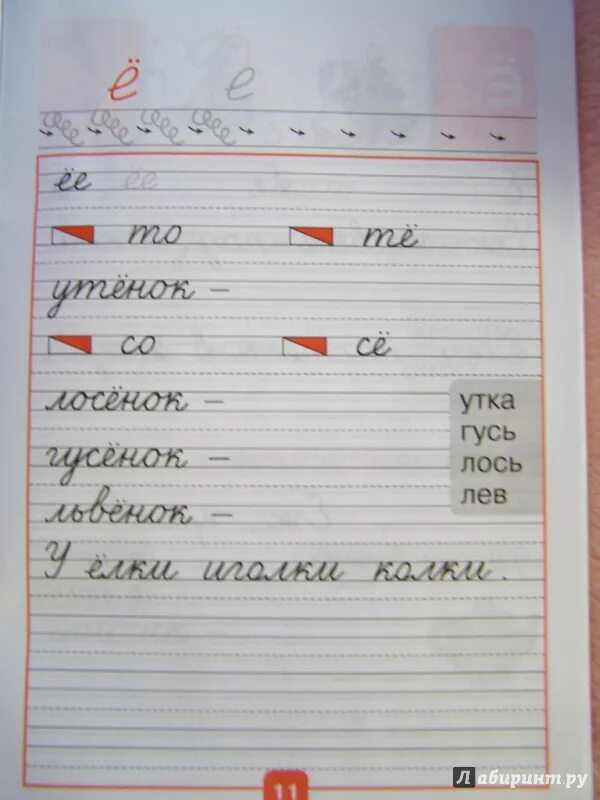 ё е
Ё
ёе ёе
то тё
утёнок –
со сё
лосёнок –
гусёнок –
львёнок –
утка
гусь
лось
лев
У ёлки иголки колки.
11
Лабиринт.ру